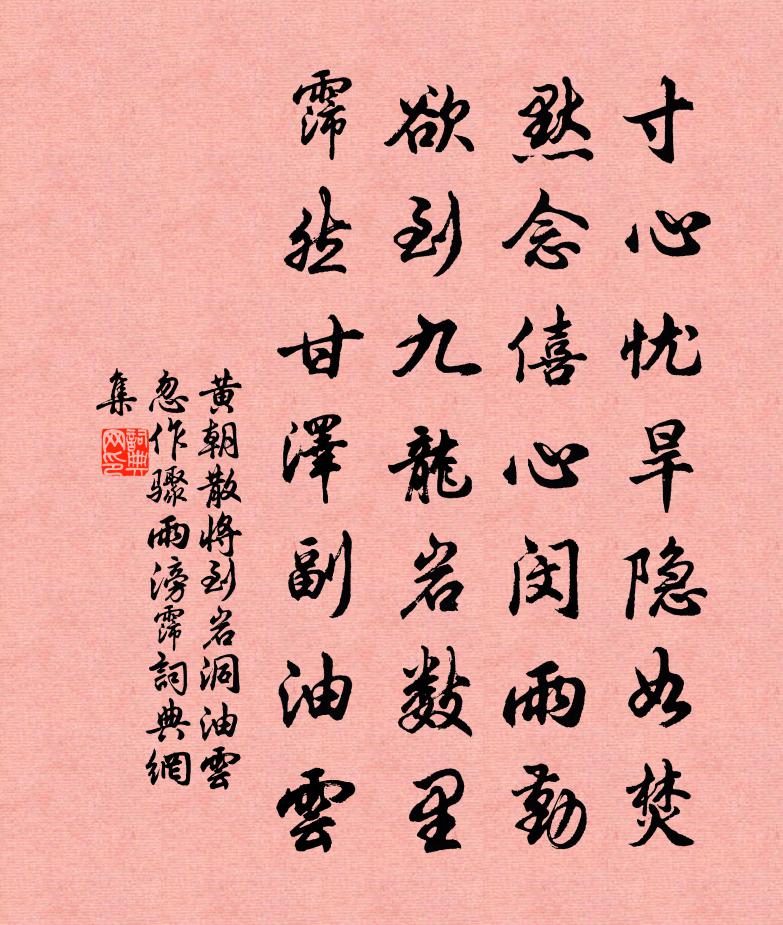 寸心忧旱隐如焚
默念僖心闵雨勤
欲到九龍岩数里
霈然甘澤副油雲
黄朝散將到岩洞油雲
忽作驟雨滂霈詞典網
集
詞典网印